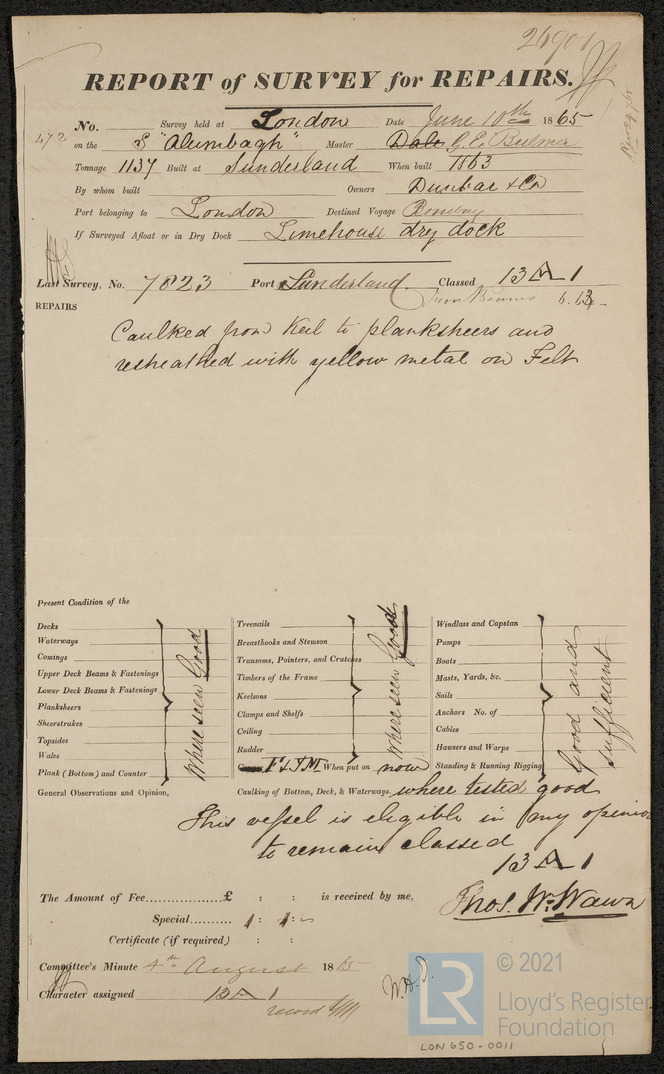 26901
REPORT of SURVEY for REPAIRS.
No. Survey held at London Date June 10th 1865
472 on the S "Alumbagh" Master Dale G. E. Bulmer
Tonnage 1137 Built at Sunderland When built 1863
By whom built Owners Dunbar & Co
Port belonging to London Destined Voyage Bombay
If Surveyed Afloat or in Dry Dock Limehouse dry dock
Last Survey, No. 7823 Port Sunderland Classed 13 A 1
Iron Beams 6.63
REPAIRS
Caulked from Keel to planksheers and
resheathed with yellow metal on Felt
Present Condition of the
Decks
Waterways
Comings
Upper Deck Beams & Fastenings
Lower Deck Beams & Fastenings
Planksheers
Sheerstrakes
Topsides
Wales
Plank (Bottom) and Counter
Where seen Good
Treenails
Breasthooks and Stemson
Transoms, Pointers, and Crutches
Timbers of the Frame
Keelsons
Clamps and Shelfs
Ceiling
Rudder
Where seen Good
F & YM When put on now
Windlass and Capstan
Pumps
Boats
Masts, Yards, &c.
Sails
Anchors No. of
Cables
Hawsers and Warps
Standing & Running Rigging
Good and sufficient
General Observations and Opinion, Caulking of Bottom, Deck, & Waterways. where tested good
This vessel is eligible in my opinion
to remain classed
13 A 1
The Amount of Fee.................£ : : is received by me,
Special.......... 1 : 1 : -
Thos. Wm. Wawn
Certificate (if required) : :
Committee's Minute 4th August 1865
Character assigned 13 A 1
record
© 2021
LR
Lloyd's Register
Foundation
LON 650-0011